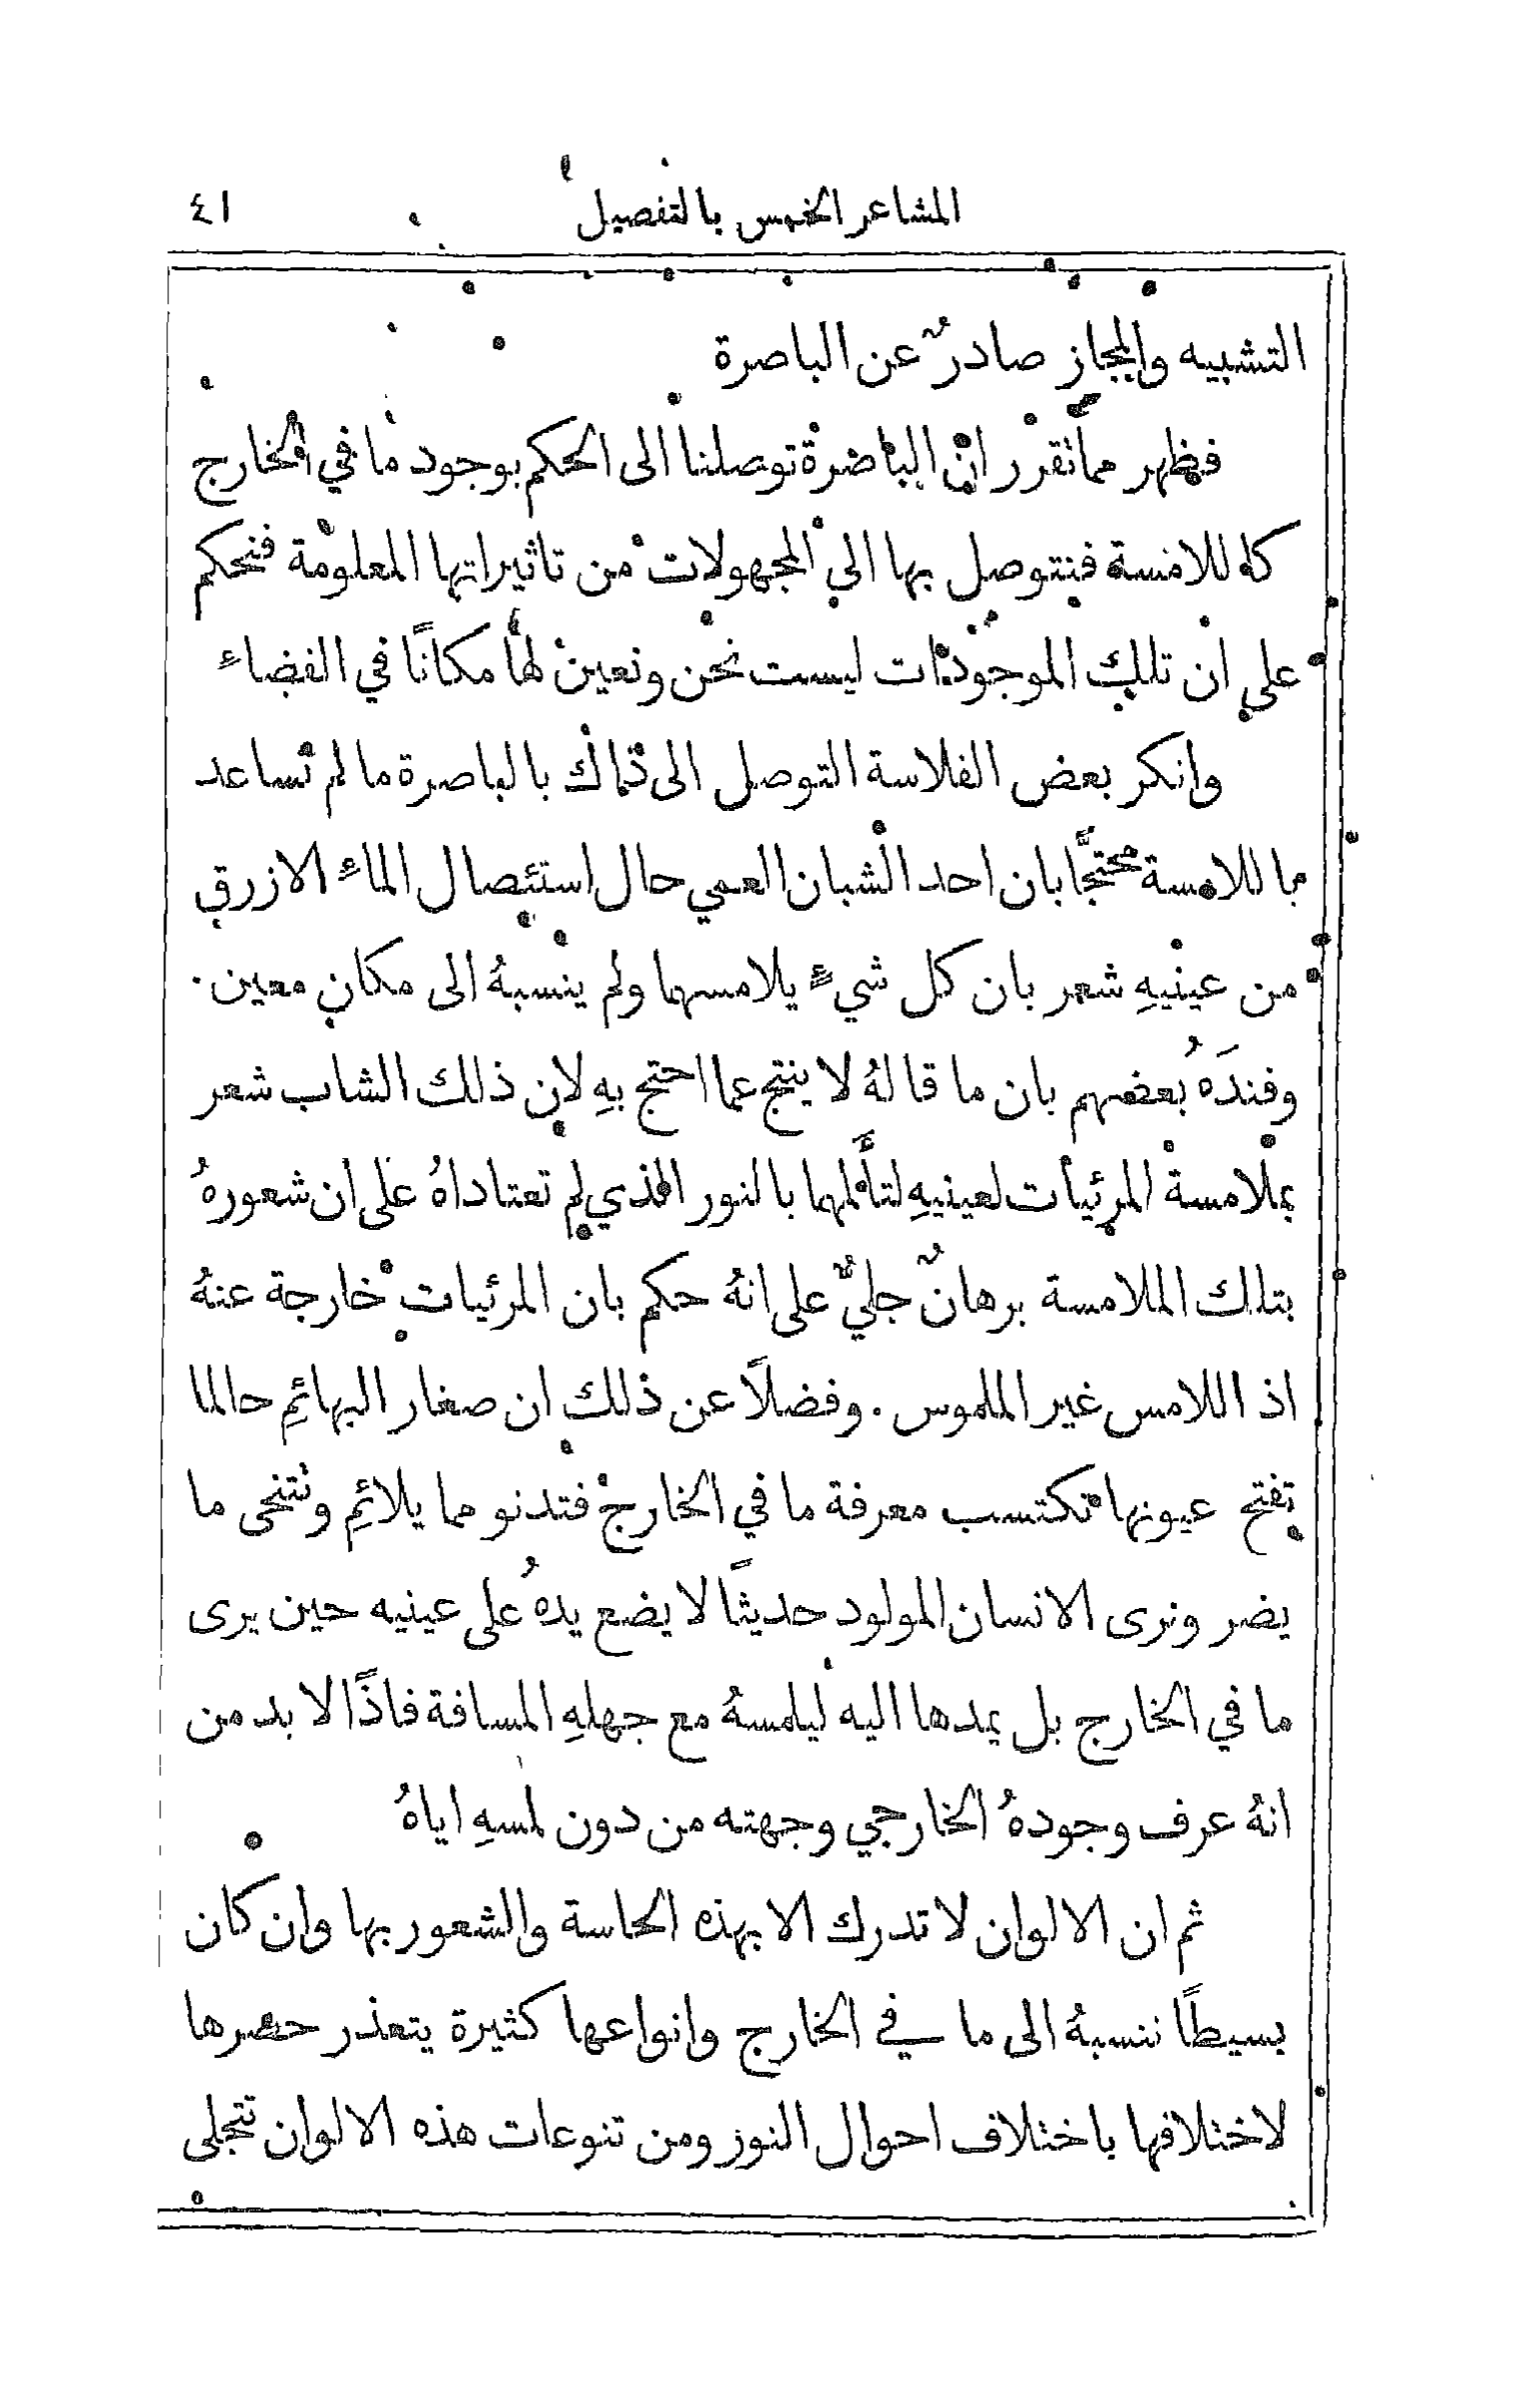 المشاعر الخمس بالتفصيل ٤١
التشبيه والمجاز صادرٌ عن الباصرة
فيظهر مما تقرر ان الباصرة توصلنا الى الحكم بوجود ما في الخارج
كاللامسة فنتوصل بها الى المجهولات من تاثيراتها المعلومة فنحكم
على ان تلك الموجودات ليست نحن ونعين لها مكانًا في الفضاء
وانكر بعض الفلاسة التوصل الى ذاك بالباصرة ما لم تساعد
باللامسة محتجًّا بان احد الشبان العمي حال استئصال الماء الازرق
من عينيهِ شعر بان كل شيءٍ يلامسها ولم ينسبهُ الى مكان معين .
وفندَهُ بعضهم بان ما قالهُ لا ينتج عما احتج بهِ لان ذلك الشاب شعر
بملامسة المرئيات لعينيهِ لتأَلمها بالنور الذي لم تعتاداهُ على ان شعورهُ
بتلك الملامسة برهانٌ جليٌّ على انهُ حكم بان المرئيات خارجة عنهُ
اذ اللامس غير الملموس . وفضلاً عن ذلك ان صغار البهائمِ حالما
تفتح عيونها تكتسب معرفة ما في الخارج فتدنو مما يلائمِ وتتنحى ما
يضر ونرى الانسان المولود حديثًا لا يضع يدهُ على عينيه حين يرى
ما في الخارج بل يمدها اليه ليلمسهُ مع جهلهِ المسافة فاذًا لا بد من
انهُ عرف وجودهُ الخارجي وجهته من دون لمسهِ اياهُ
ثم ان الالوان لا تدرك الا بهذه الحاسة والشعور بها وان كان
بسيطًا ننسبهُ الى ما في الخارج وانواعها كثيرة يتعذر حصرها
لاختلافها باختلاف احوال النور ومن تنوعات هذه الالوان تتجلى